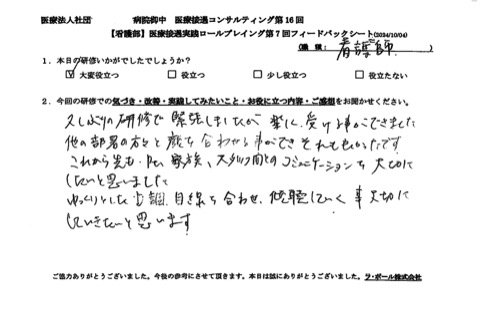 医療法人社団　　　　病院御中　医療接遇コンサルティング第16回
【看護部】医療接遇実践ロールプレイング第7回フィードバックシート(2024/10/04)
(職種：看護師)
1．本日の研修いかがでしたでしょうか？
☑ 大変役立つ　□ 役立つ　□ 少し役立つ　□ 役立たない
2．今回の研修での気づき・改善・実践してみたいこと・お役に立つ内容・ご感想をお聞かせください。
久しぶりの研修で緊張しましたが楽しく受ける事ができました
他の部署の方々と顔を合わせる事ができそれも
これから先も 家族、スタッフ間とのコミュニケーションも大切に
したいと思いました
ゆっくりとした口調、目線を合わせ、傾聴していく事大切に
していきたいと思います
ご協力ありがとうございました。今後の参考にさせて頂きます。本日は誠にありがとうございました。ラ・ポール株式会社